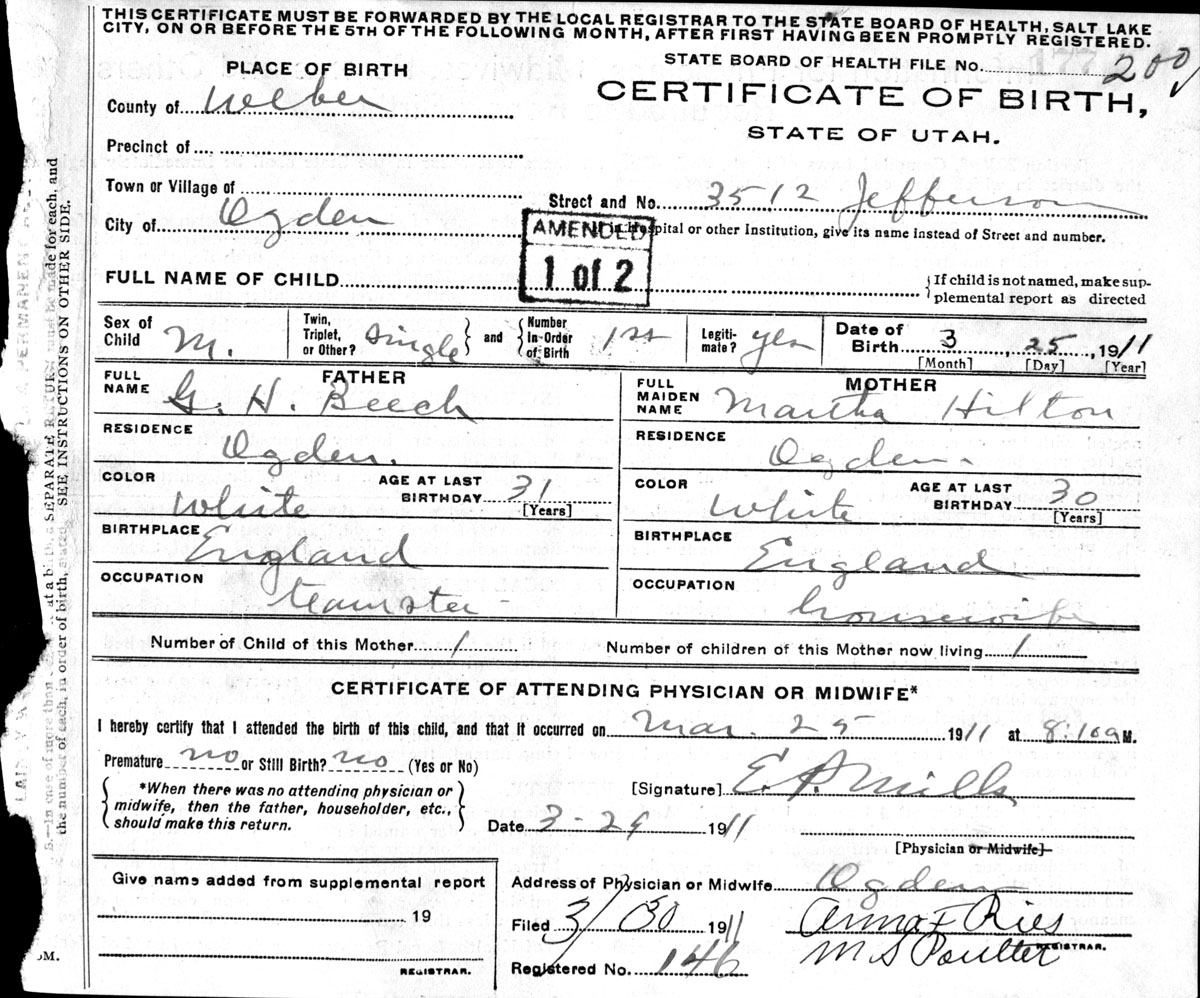 THIS CERTIFICATE MUST BE FORWARDED BY THE LOCAL REGISTRAR TO THE STATE BOARD OF HEALTH, SALT LAKE
CITY, ON OR BEFORE THE 5TH OF THE FOLLOWING MONTH, AFTER FIRST HAVING BEEN PROMPTLY REGISTERED.
PLACE OF BIRTH
STATE BOARD OF HEALTH FILE No. 200
County of Weber
CERTIFICATE OF BIRTH,
STATE OF UTAH.
Precinct of
Town or Village of
Street and No. 3512 Jefferson
City of Ogden
AMENDED
1 of 2
Hospital or other Institution, give its name instead of Street and number.
FULL NAME OF CHILD
{If child is not named, make sup-
plemental report as directed
Sex of Child M.
Twin, Triplet, or Other? Single } and { Number In Order of Birth 1st
Legiti-mate? yes
Date of Birth 3, 25, 1911
[Month] [Day] [Year]
FATHER
FULL NAME G. H. Beech
RESIDENCE
Ogden.
COLOR White
AGE AT LAST BIRTHDAY 31
[Years]
BIRTHPLACE England
OCCUPATION
teamster
MOTHER
FULL MAIDEN NAME Martha Hilton
RESIDENCE
Ogden
COLOR White
AGE AT LAST BIRTHDAY 30
[Years]
BIRTHPLACE England
OCCUPATION
housewife
Number of Child of this Mother 1
Number of children of this Mother now living 1
CERTIFICATE OF ATTENDING PHYSICIAN OR MIDWIFE*
I hereby certify that I attended the birth of this child, and that it occurred on Mar. 25 1911 at 8:10 a M.
Premature no or Still Birth? no (Yes or No)
{ *When there was no attending physician or
midwife, then the father, householder, etc.,
should make this return. }
[Signature] E. P. Mills
Date 3-29 1911
[Physician or Midwife]
Give name added from supplemental report
19
REGISTRAR.
Address of Physician or Midwife Ogden
Filed 3/30 1911
Anna F Ries
M S Poulter
REGISTRAR.
Registered No. 146
in case of more than
at a birth a SEPARATE RETURN must be made for each, and
the number of each, in order of birth, stated. SEE INSTRUCTIONS ON OTHER SIDE.